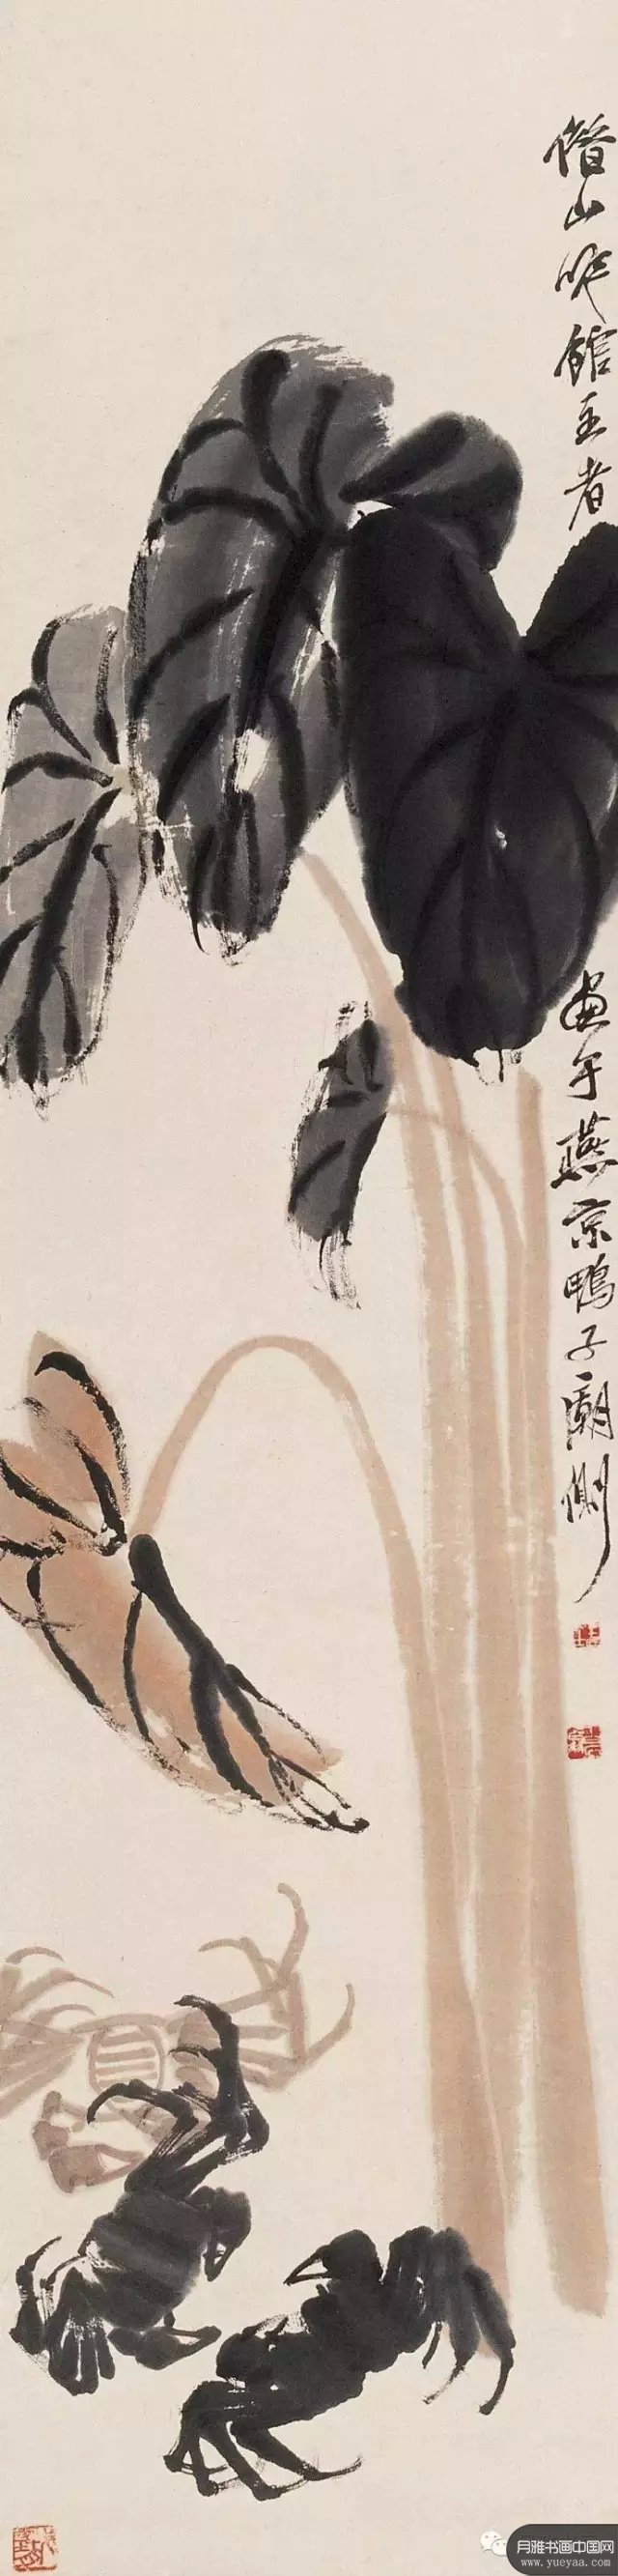 借山吟馆主者
画于燕京鸭子庙侧
月雅书画中国网
www.yueyaa.com